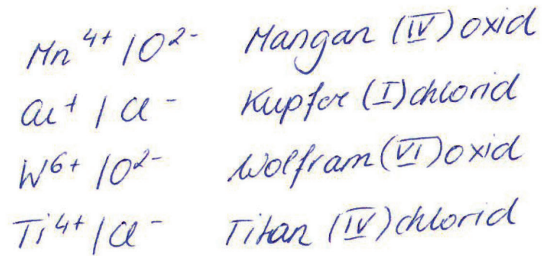 Mn⁴⁺ / O²⁻ Mangan (IV) oxid
Cu⁺ / Cl⁻ Kupfer (I) chlorid
W⁶⁺ / O²⁻ Wolfram (VI) oxid
Ti⁴⁺ / Cl⁻ Titan (IV) chlorid